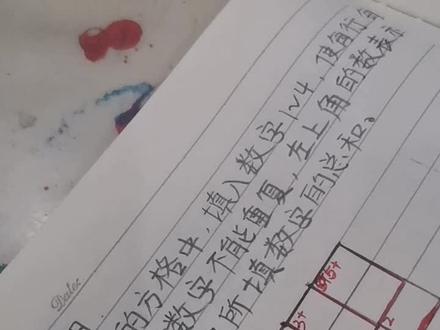 的方格中,填入数字1~4,使每行每
数字不能重复,左上角的数表示
所填数字的总和。
Date:
5+
3+
2